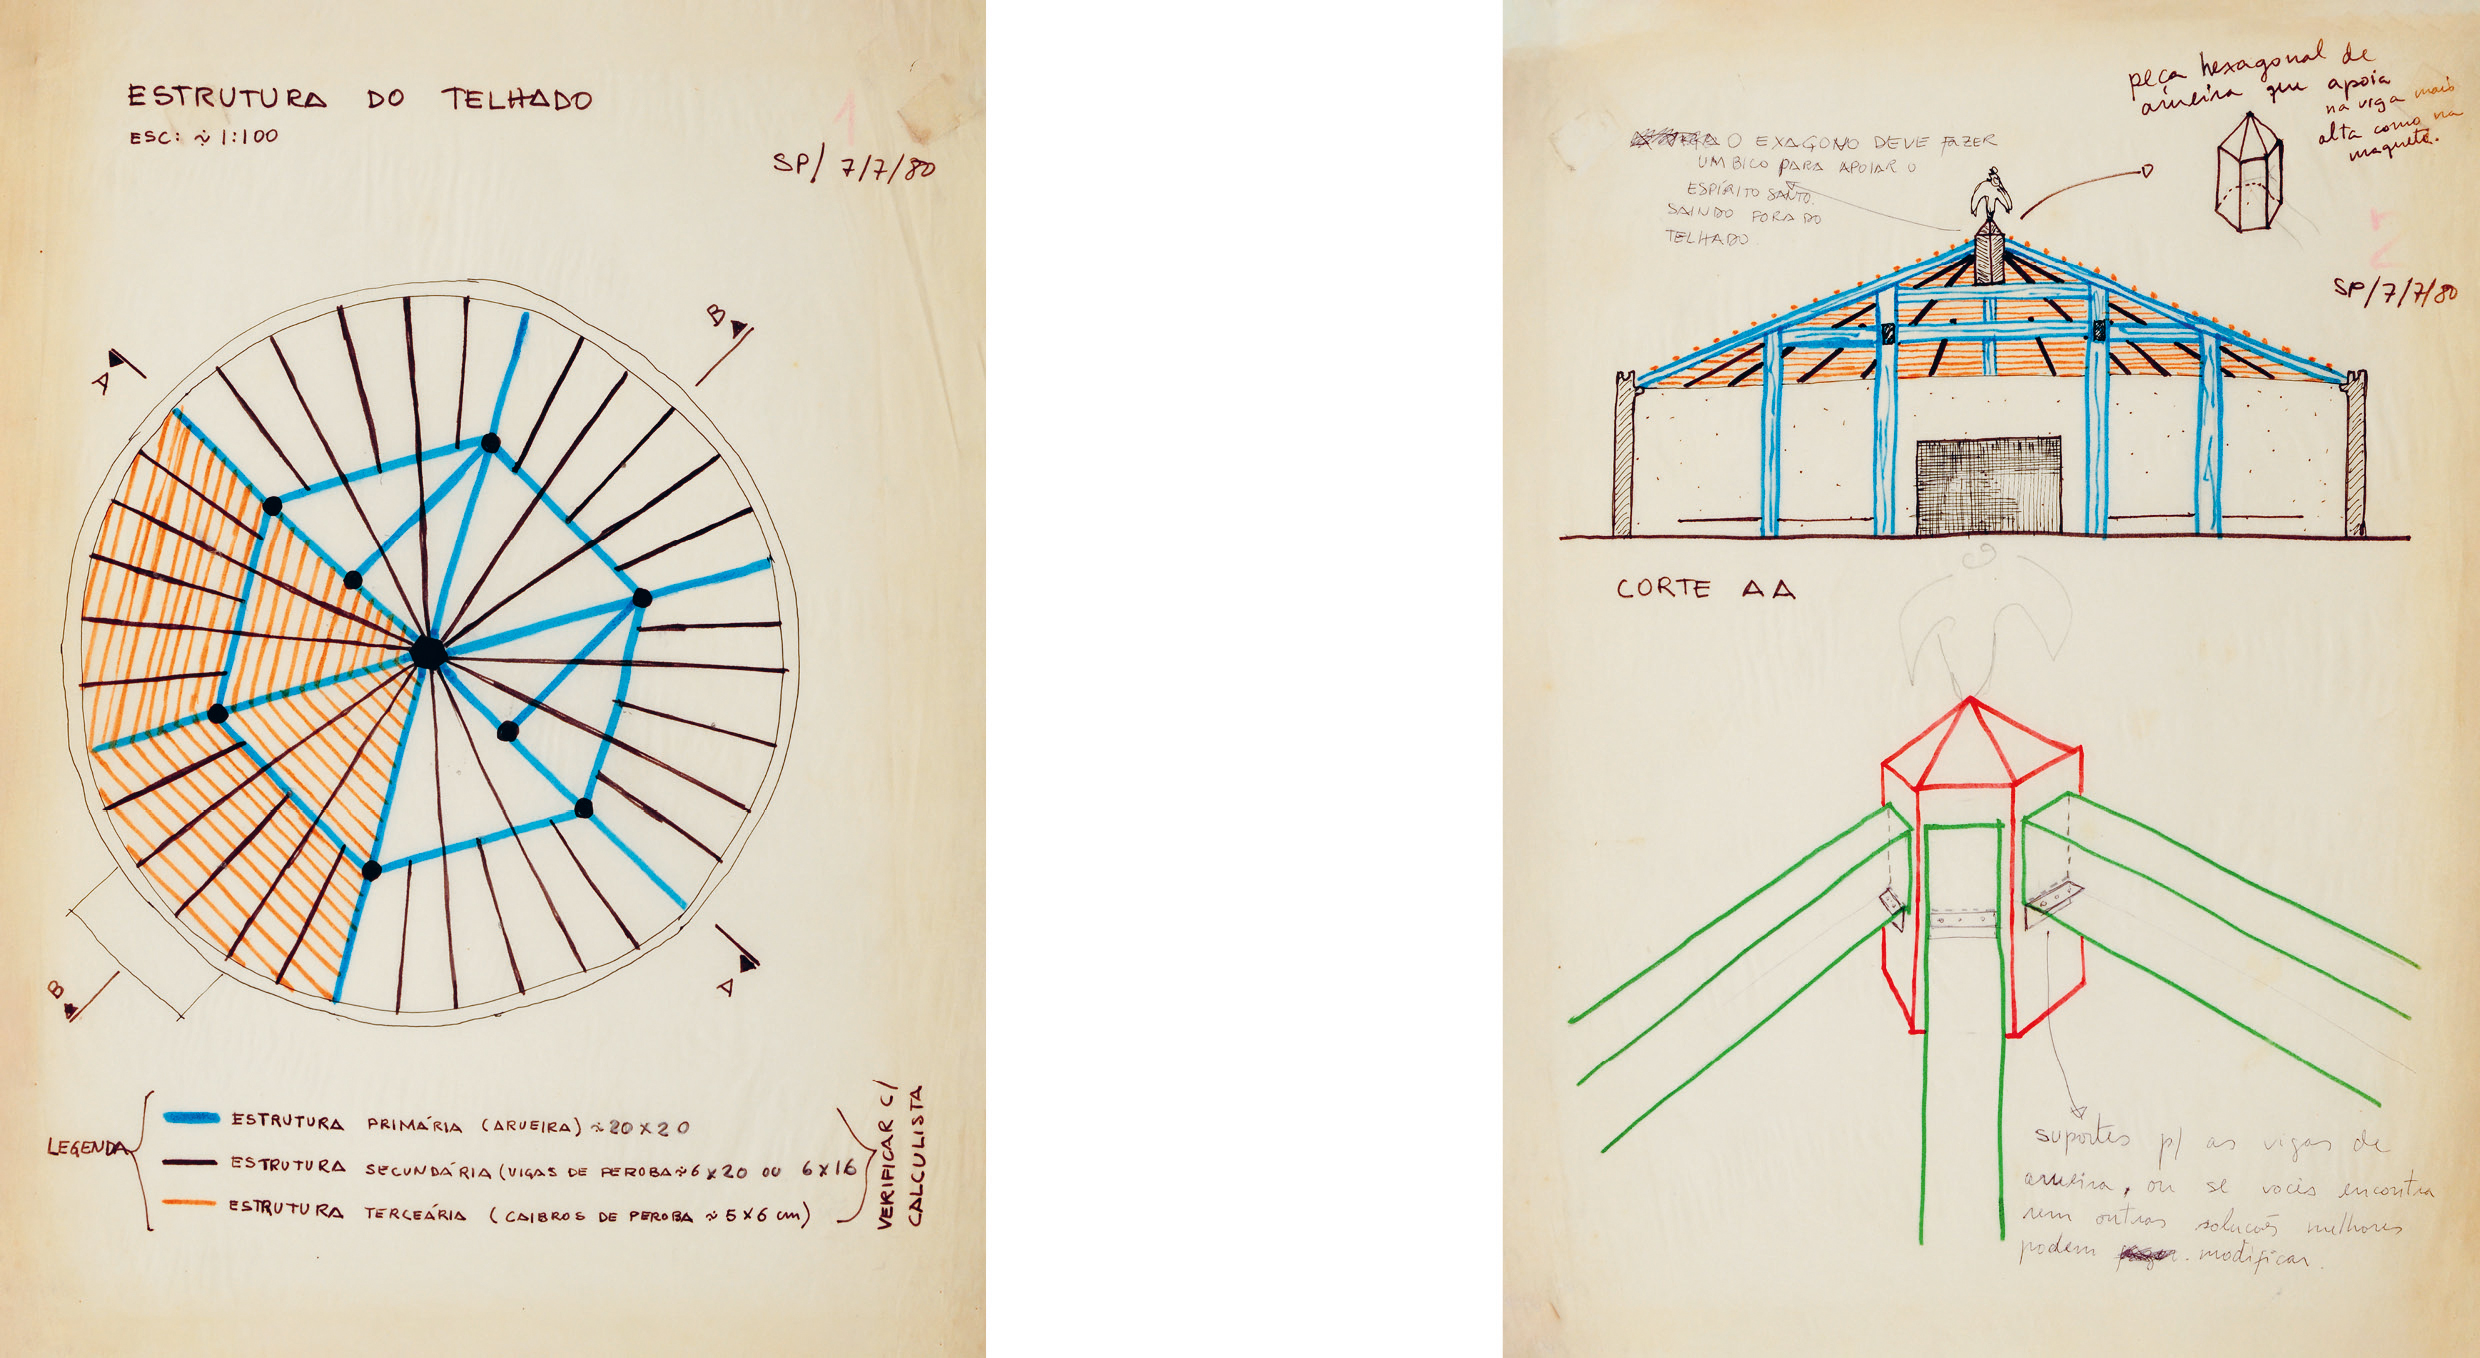 ESTRUTURA DO TELHADO
ESC: ~ 1:100
1
SP/ 7/7/80
A
B
B
A
LEGENDA
ESTRUTURA PRIMÁRIA (ARUEIRA) ~ 20X20
ESTRUTURA SECUNDÁRIA (VIGAS DE PEROBA ~ 6X20 OU 6X16
ESTRUTURA TERCEÁRIA (CAIBROS DE PEROBA ~ 5X6 cm)
VERIFICAR C/
CALCULISTA
peça hexagonal de
arueira que apoia
na viga mais
alta como na
maquete.
O EXAGONO DEVE FAZER
UM BICO PARA APOIAR O
ESPÍRITO SANTO.
SAINDO FORA DO
TELHADO
2
SP/7/7/80
CORTE AA
suportes p/ as vigas de
arueira, ou se vocês encontra
rem outras soluções melhores
podem modificar.